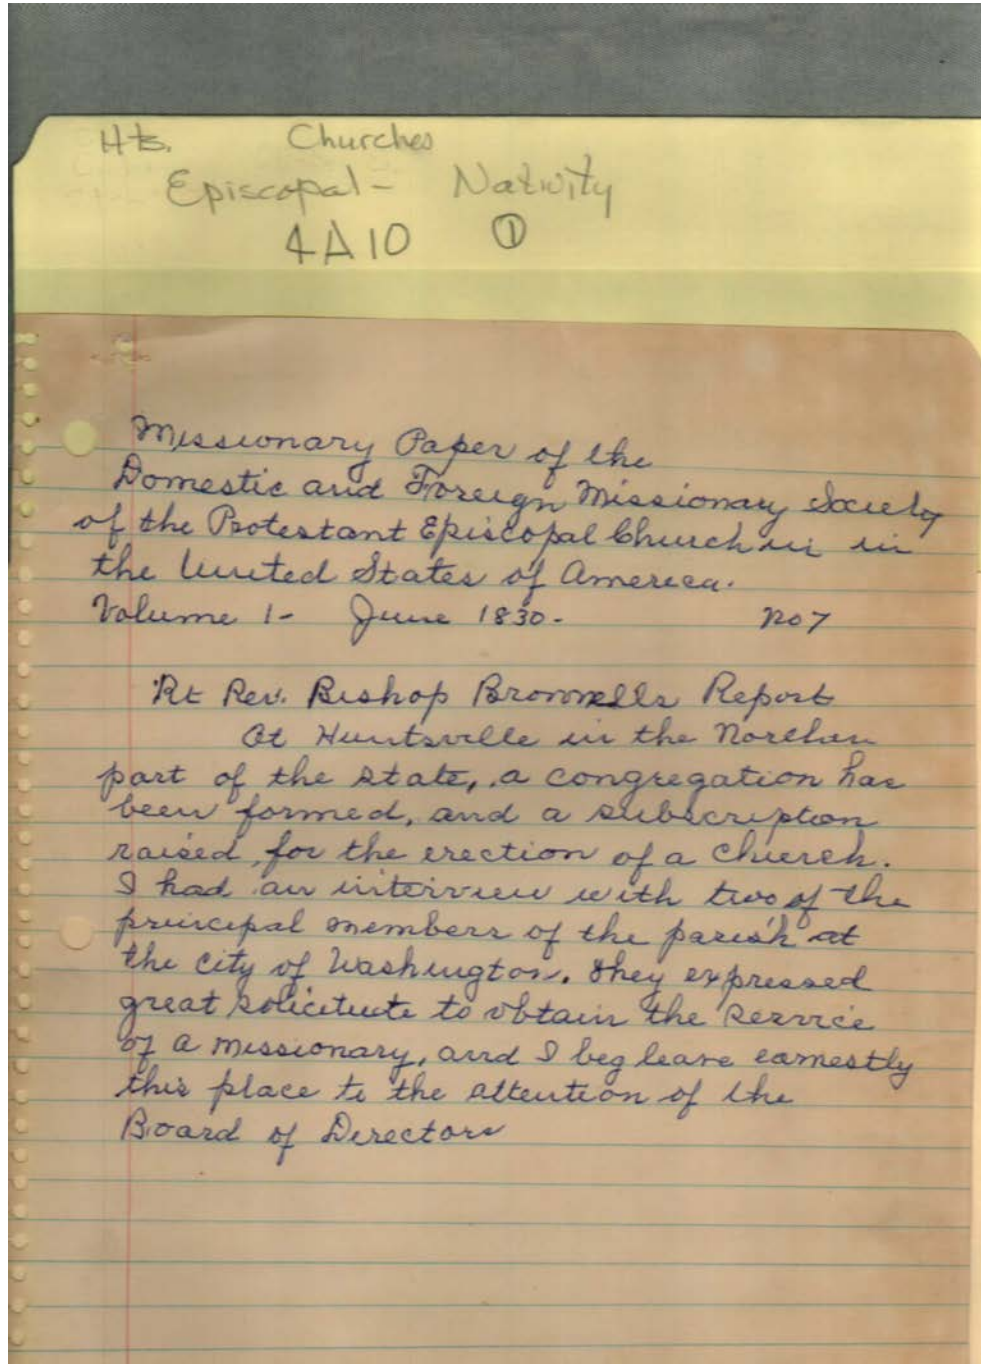 Hts. Churches
Episcopal - Nativity
4A10 ①
Missionary Paper of the
Domestic and Foreign Missionary Society
of the Protestant Episcopal Church in in
the United States of America.
Volume 1- June 1830- No 7
Rt Rev. Bishop Brownells Report
At Huntsville in the Northern
part of the state, a congregation has
been formed, and a subscription
raised, for the erection of a church.
I had an interview with two of the
principal members of the parish at
the city of Washington. They expressed
great solicitute to obtain the service
of a missionary, and I beg leave earnestly
this place to the attention of the
Board of Directors